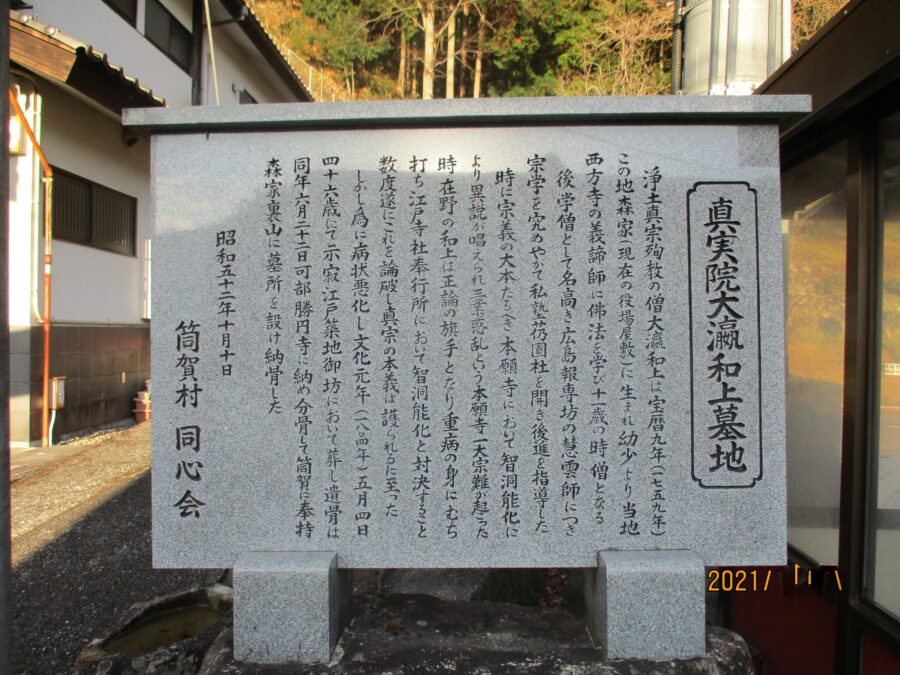 真実院大瀛和上墓地
浄土真宗殉教の僧大瀛和上は宝暦九年(一七五九年)
この地森家(現在の役場屋敷)に生まれ幼少より当地
西方寺の義諦師に佛法を学び十一歳の時僧となる
後学僧として名高き広島報専坊の慧雲師につき
宗学を究めやがて私塾芿園社を開き後進を指導した
時に宗義の大本たるべき本願寺において智洞能化に
より異説が唱えられ三業惑乱という本願寺一大宗難が起った
時在野の和上は正論の旗手となり重病の身にむち
打ち江戸寺社奉行所において智洞能化と対決すること
数度遂にこれを論破し真宗の本義は護られるに至った
しかし為に病状悪化し文化元年(一八〇四年)五月四日
四十六歳にて示寂江戸築地御坊において葬し遺骨は
同年六月二十二日可部勝円寺に納め分骨して筒賀に奉持
森家裏山に墓所を設け納骨した
昭和五十二年十月十日
筒賀村 同心会
2021/